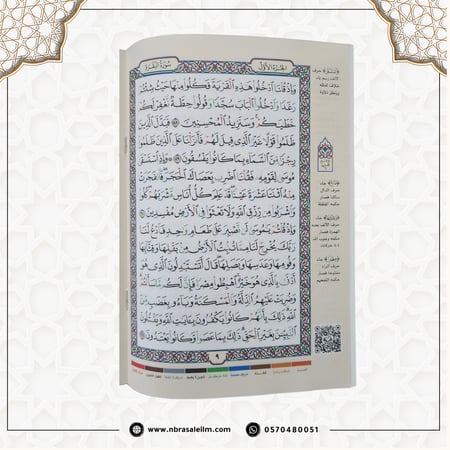 الجزء الأول
سورة البقرة
وَإِذْ قُلْنَا ٱدْخُلُوا۟ هَٰذِهِ ٱلْقَرْيَةَ فَكُلُوا۟ مِنْهَا حَيْثُ شِئْتُمْ
رَغَدًا وَٱدْخُلُوا۟ ٱلْبَابَ سُجَّدًا وَقُولُوا۟ حِطَّةٌ نَّغْفِرْ لَكُمْ
خَطَٰيَٰكُمْ وَسَنَزِيدُ ٱلْمُحْسِنِينَ ٥٨ فَبَدَّلَ ٱلَّذِينَ
ظَلَمُوا۟ قَوْلًا غَيْرَ ٱلَّذِى قِيلَ لَهُمْ فَأَنزَلْنَا عَلَى ٱلَّذِينَ ظَلَمُوا۟
رِجْزًا مِّنَ ٱلسَّمَآءِ بِمَا كَانُوا۟ يَفْسُقُونَ ٥٩ وَإِذِ ٱسْتَسْقَىٰ
مُوسَىٰ لِقَوْمِهِۦ فَقُلْنَا ٱضْرِب بِّعَصَاكَ ٱلْحَجَرَ فَٱنفَجَرَتْ
مِنْهُ ٱثْنَتَا عَشْرَةَ عَيْنًا قَدْ عَلِمَ كُلُّ أُنَاسٍ مَّشْرَبَهُمْ كُلُوا۟
وَٱشْرَبُوا۟ مِن رِّزْقِ ٱللَّهِ وَلَا تَعْثَوْا۟ فِى ٱلْأَرْضِ مُفْسِدِينَ ٦٠
وَإِذْ قُلْتُمْ يَٰمُوسَىٰ لَن نَّصْبِرَ عَلَىٰ طَعَامٍ وَٰحِدٍ فَٱدْعُ لَنَا
رَبَّكَ يُخْرِجْ لَنَا مِمَّا تُنۢبِتُ ٱلْأَرْضُ مِنۢ بَقْلِهَا وَقِثَّآئِهَا
وَفُومِهَا وَعَدَسِهَا وَبَصَلِهَا قَالَ أَتَسْتَبْدِلُونَ ٱلَّذِى هُوَ
أَدْنَىٰ بِٱلَّذِى هُوَ خَيْرٌ ٱهْبِطُوا۟ مِصْرًا فَإِنَّ لَكُم مَّا سَأَلْتُمْ
وَضُرِبَتْ عَلَيْهِمُ ٱلذِّلَّةُ وَٱلْمَسْكَنَةُ وَبَآءُو بِغَضَبٍ مِّنَ
ٱللَّهِ ذَٰلِكَ بِأَنَّهُمْ كَانُوا۟ يَكْفُرُونَ بِـَٔايَٰتِ ٱللَّهِ وَيَقْتُلُونَ
ٱلنَّبِيِّـۧنَ بِغَيْرِ ٱلْحَقِّ ذَٰلِكَ بِمَا عَصَوا۟ وَّكَانُوا۟ يَعْتَدُونَ ٦١
٩
www.nbrasalelm.com
0570480051